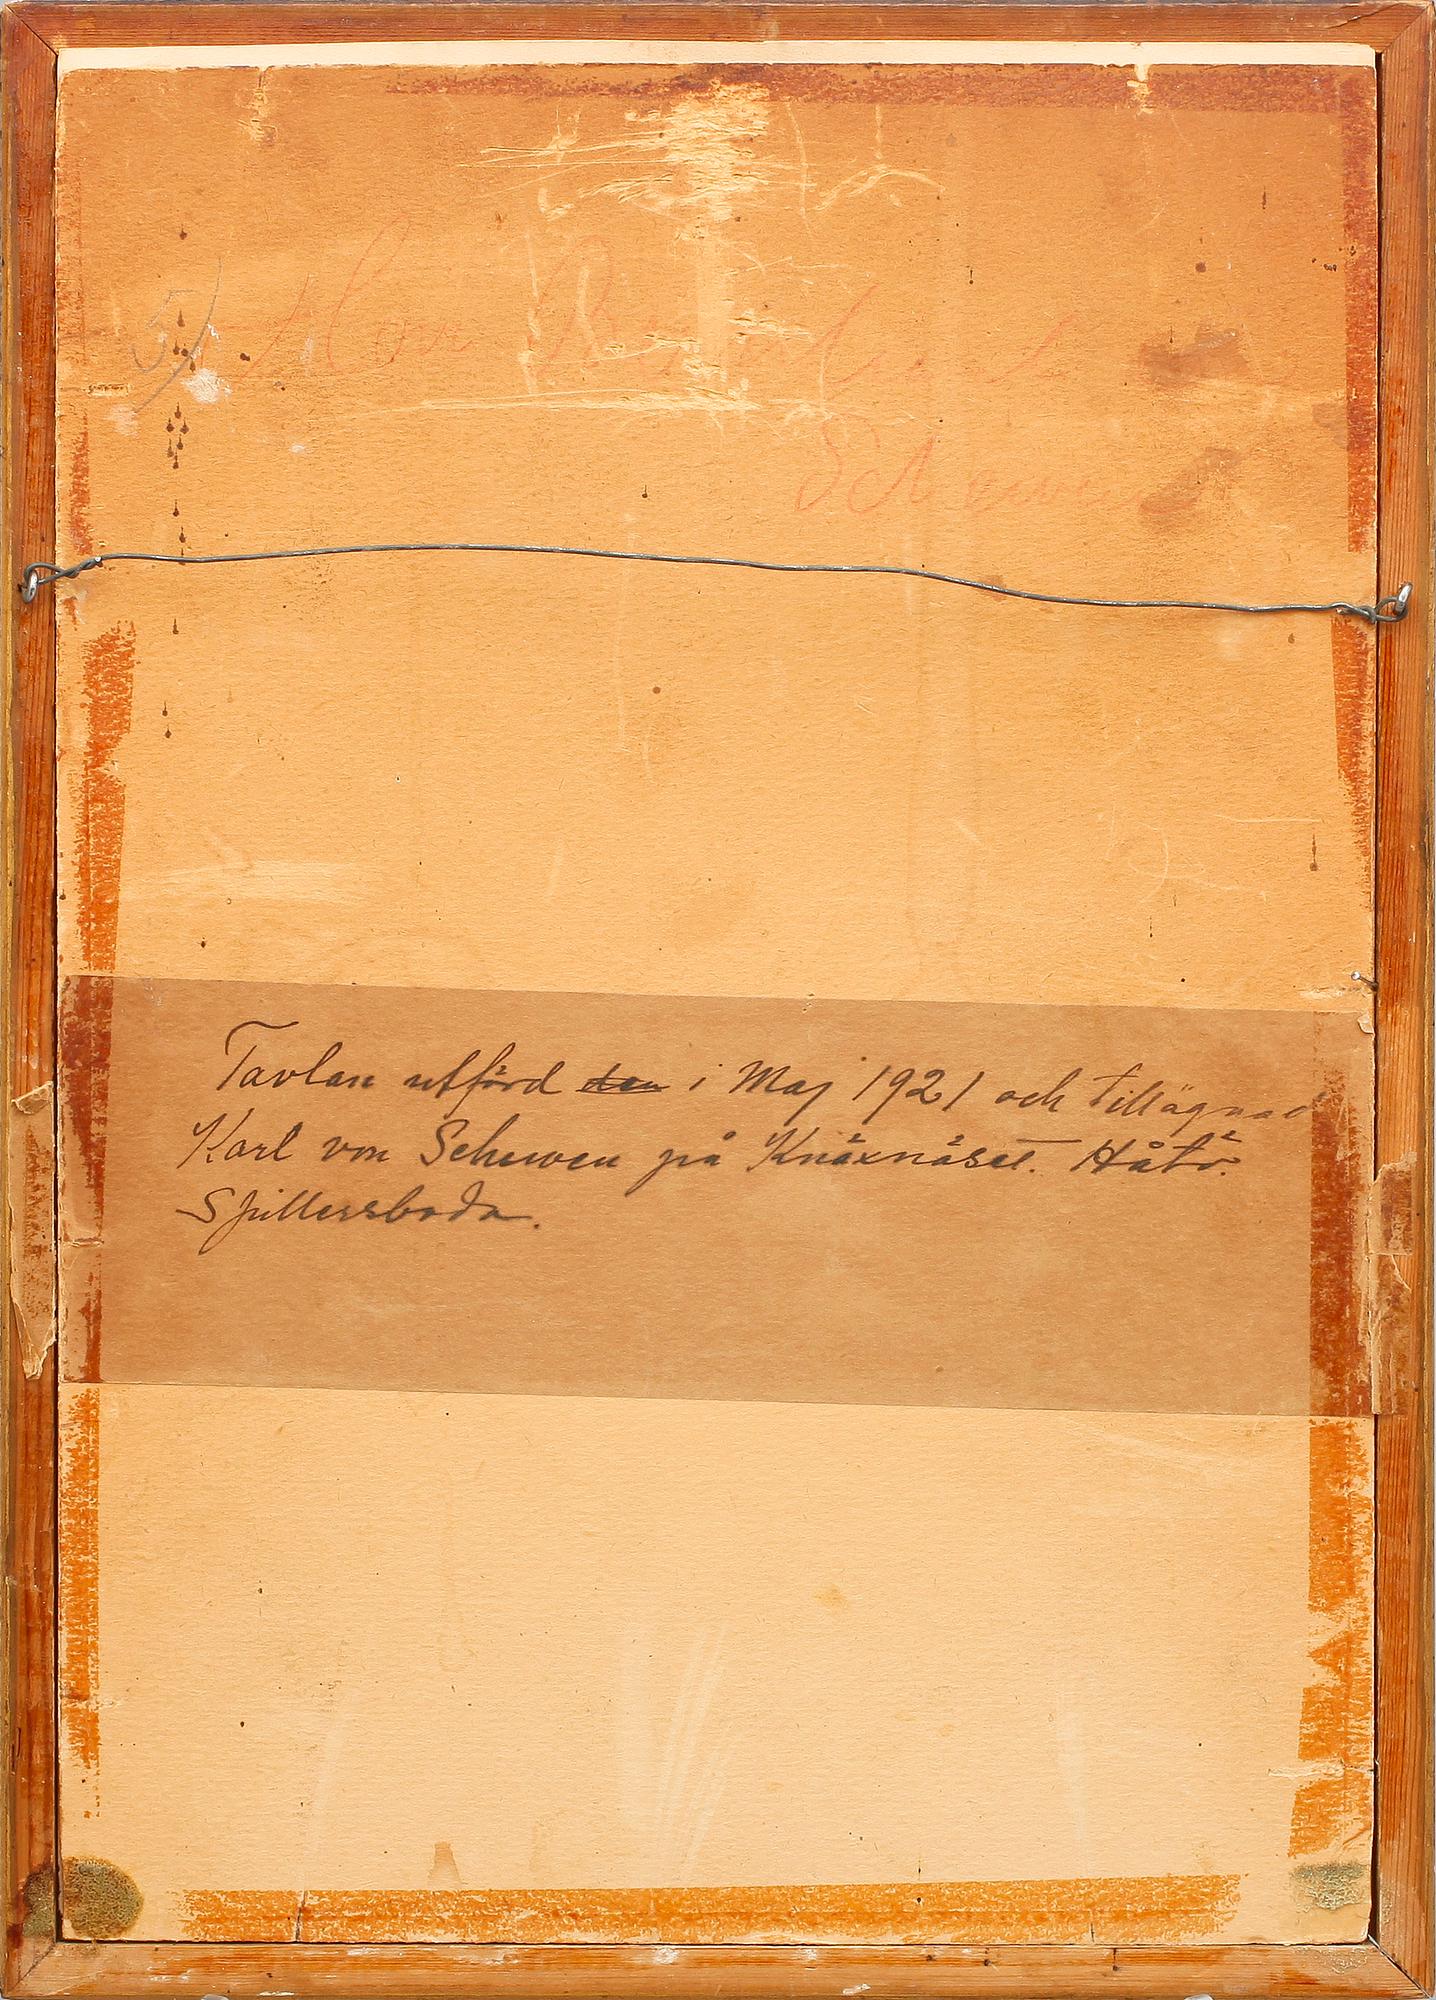 5)
Schewen
Tavlan utförd den i Maj 1921 och tillägnad
Karl von Schewen på Knäxnäset. Håtö.
Spillersboda.